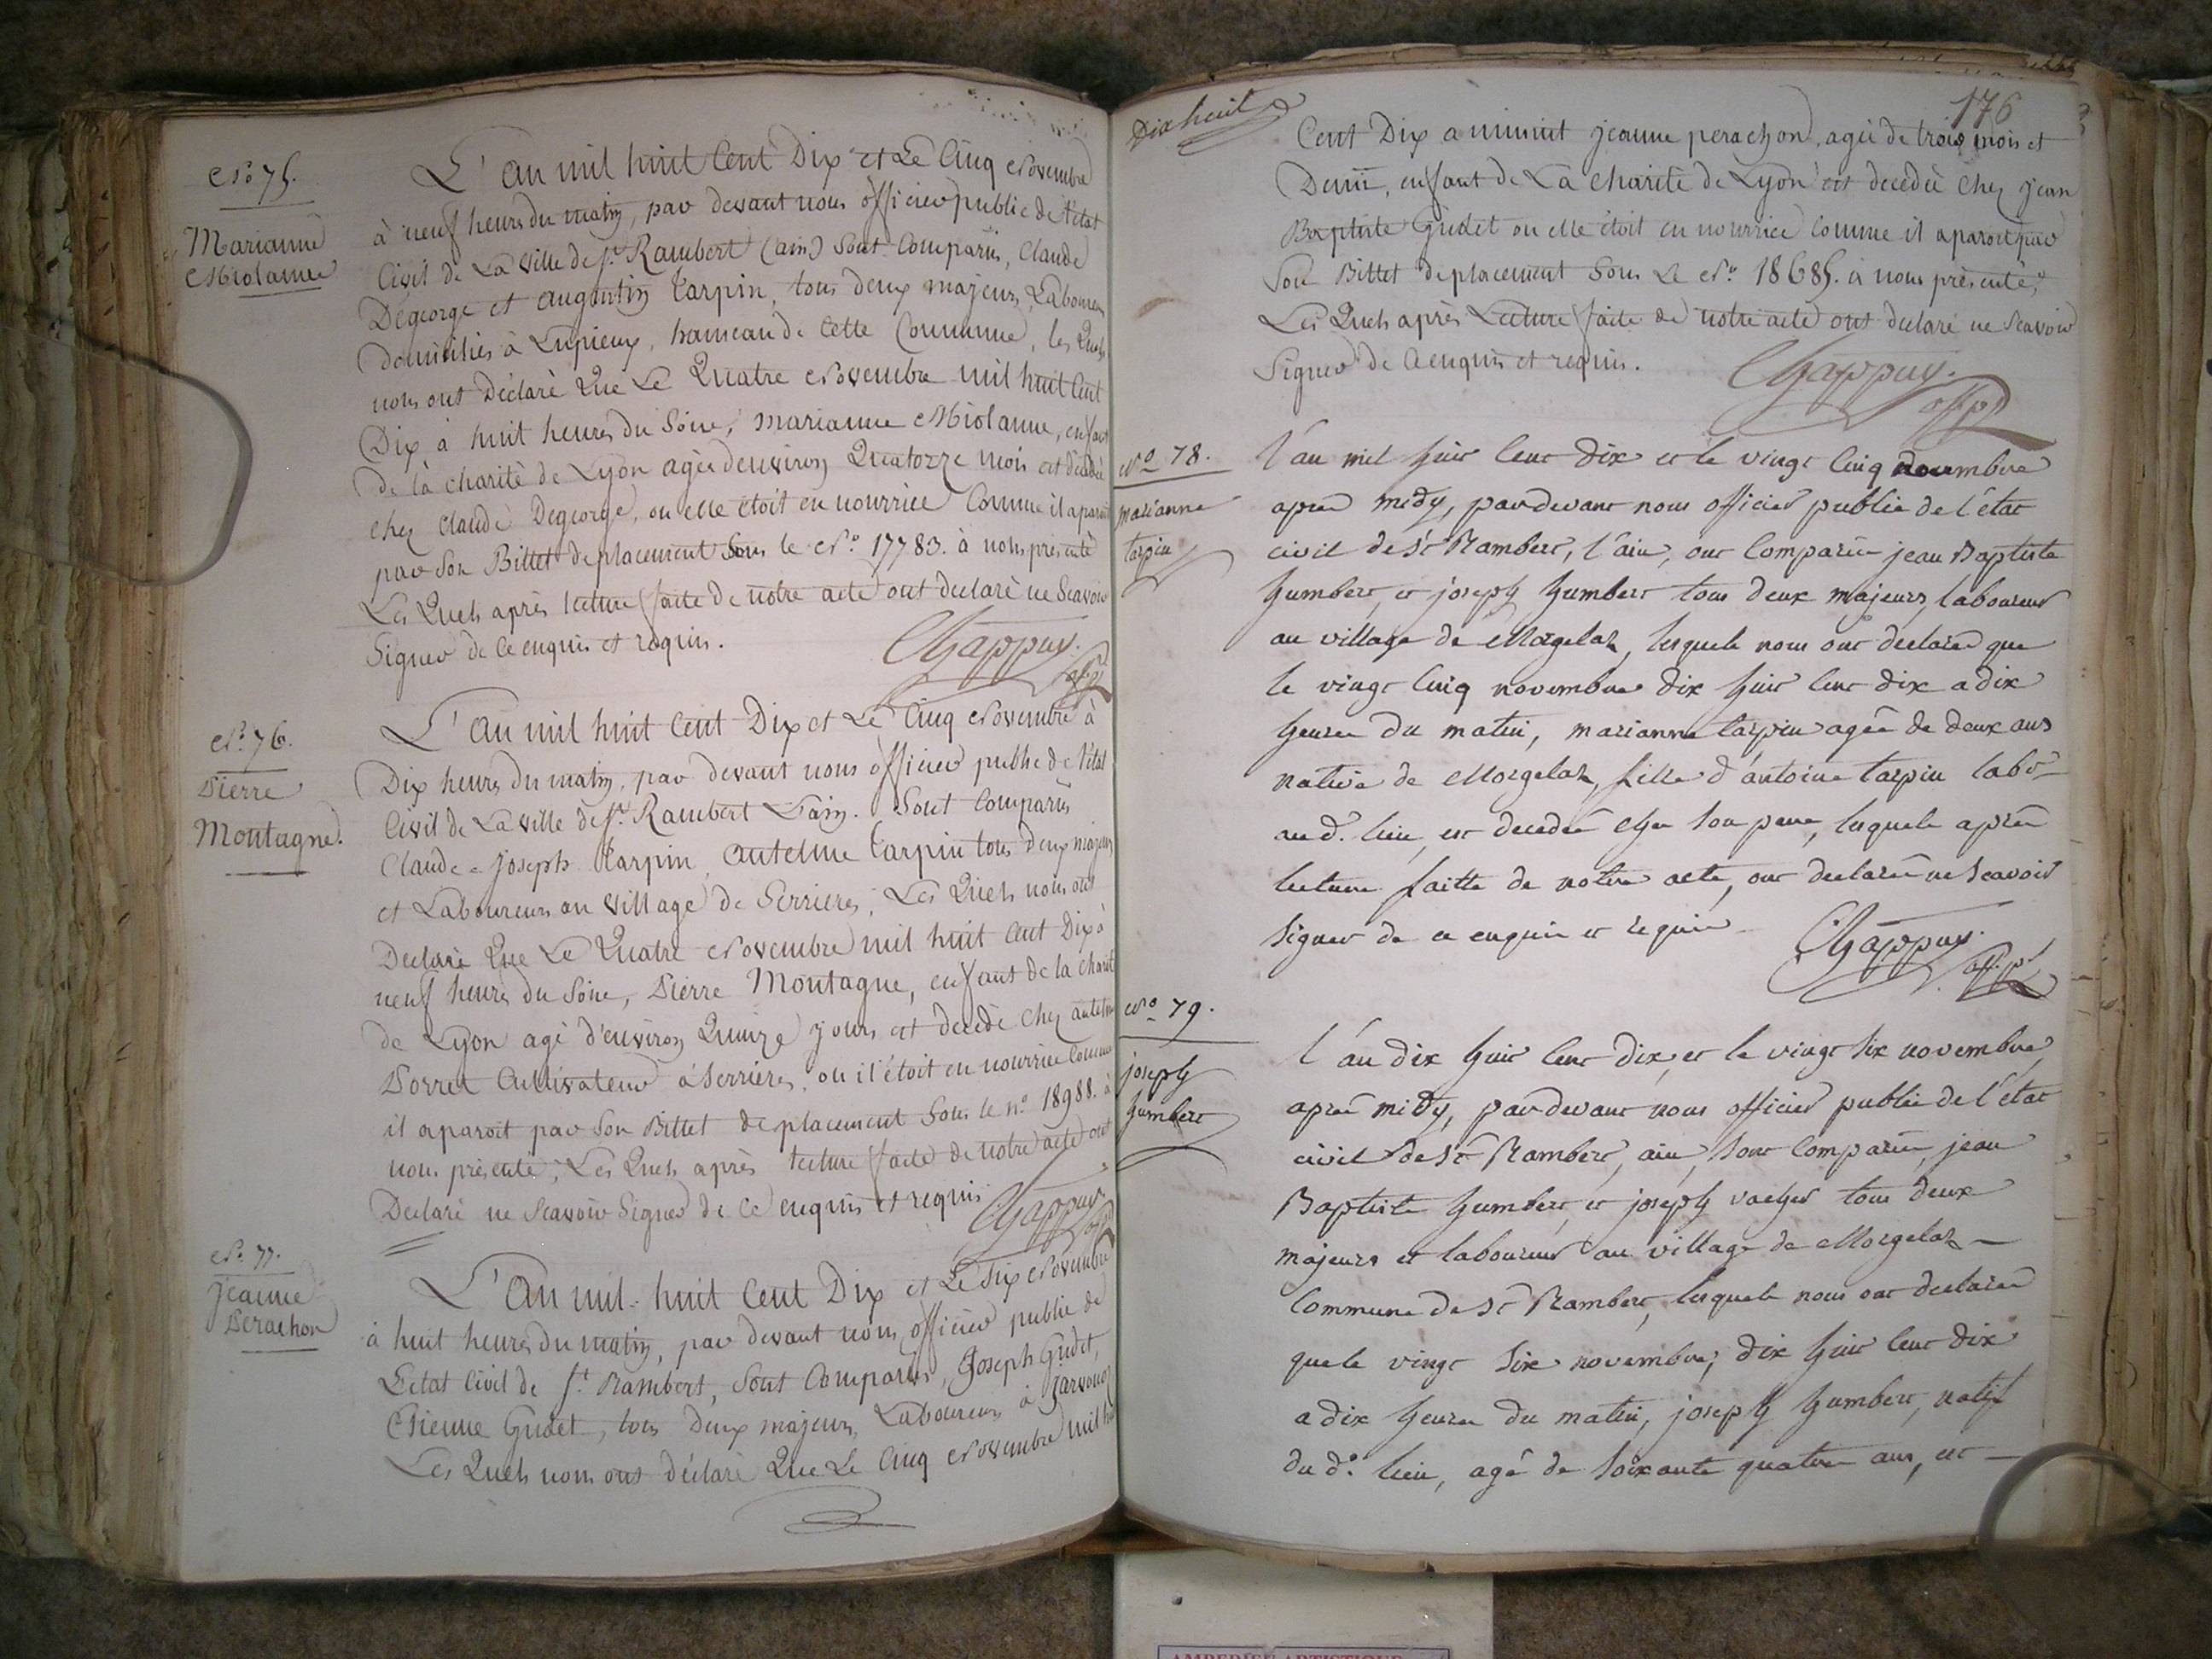 No 75.
Marianne
Miolanne
L'an mil huit Cent Dix et Le Cinq Novembre
à neuf heures du matin, par devant nous officier public de l'état
Civil de La Ville de St. Rambert (ain) Sont Comparus, Claude
Degeorge et augustin Tarpin, tous deux majeurs, Laboureurs
domiciliés à Lupieux, hameau de Cette Commune, les Quels
nous ont Déclaré Que Le Quatre Novembre mil huit Cent
Dix à huit heures du Soire, marianne Miolanne, enfant
de la charité de Lyon agée d'environ Quatorze mois est décédée
chez Claude Degeorge, ou elle étoit en nourrice Comme il aparoit
par Son Billet de placement Sous le No. 17783. à nous présenté
Les Quels après lecture faite de notre acte ont declaré ne Scavoir
Signer de Ce enquis et requis.
Chappuy.
off. p.
No. 76.
Pierre
Montagne.
L'an mil huit Cent Dix et Le Cinq Novembre à
Dix heures du matin, par devant nous officier public de l'état
Civil de La Ville de St. Rambert L'ain. Sont Comparus
Claude=Joseph Tarpin, antelme Tarpin tous deux majeurs
et Laboureurs au Village de Serrieres, Les Quels nous ont
Declaré Que Le Quatre Novembre mil huit Cent Dix à
neuf heures du Soire, Pierre Montagne, enfant de la charité
de Lyon agé d'environ Quinze jours est decedé Chez antelme
Porret Cultivateur à Serrières, ou il étoit en nourrice Comme
il aparoit par Son Billet de placement Sous le no. 18988. à
nous présenté, Les Quels après lecture faite de notre acte ont
Declaré ne Scavoir Signer de Ce enquis et requis.
Chappuy
off. p.
No. 77.
jeanne
Perachon
L'An mil=huit Cent Dix et Le Six Novembre
à huit heures du matin, par devant nous officier public de
L'etat Civil de St. Rambert, Sont Comparus, Joseph Gudet,
Etienne Gudet, tous Deux majeurs, Laboureurs à Jarvonoz
Les Quels nous ont déclaré Que Le Cinq Novembre mil huit
Dix huit
176
Cent Dix a minuit jeanne perachon, agée de trois mois et
Demi, enfant de La Charité de Lyon est decedée Chez jean
Baptiste Gudet ou elle étoit en nourrice Comme il aparoit par
Son Billet de placement Sous Le No. 18685. à nous présenté.
Les Quels après Lecture faite de notre acte ont declaré ne Scavoir
Signer de Ce enquis et requis.
Chappuy.
off. p.
No 78.
marianne
tarpin
l'an mil huit Cent dix et le vingt Cinq novembre
après midy, pardevant nous officier public de l'état
civil de St Rambert, l'ain, ont Comparus jean Baptiste
humbert, et joseph humbert tous deux majeurs, laboureurs
au village de Morgelas, lesquels nous ont declarés que
le vingt Cinq novembre dix huit Cent dix a dix
heures du matin, marianne tarpin agée de deux ans
native de Morgelas, fille d'antoine tarpin labo.
au d. lieu, est decedée chez son pere, lesquels après
lecture faitte de notre acte, ont declarés ne Scavoir
Signer de ce enquis et requis
Chappuy.
off. p.
No 79.
joseph
humbert
l'an dix huit Cent dix, et le vingt Six novembre
après midy, pardevant nous officier public de l'état
civil de St Rambert, ain, Sont Comparus, jean
Baptiste humbert, et joseph vacher tous deux
majeurs et laboureurs au village de Morgelas
Commune de St Rambert, lesquels nous ont declarés
que le vingt Six novembre, dix huit Cent dix
a dix heures du matin, joseph humbert, natif
du d. lieu, agé de Soixante quatre ans, est